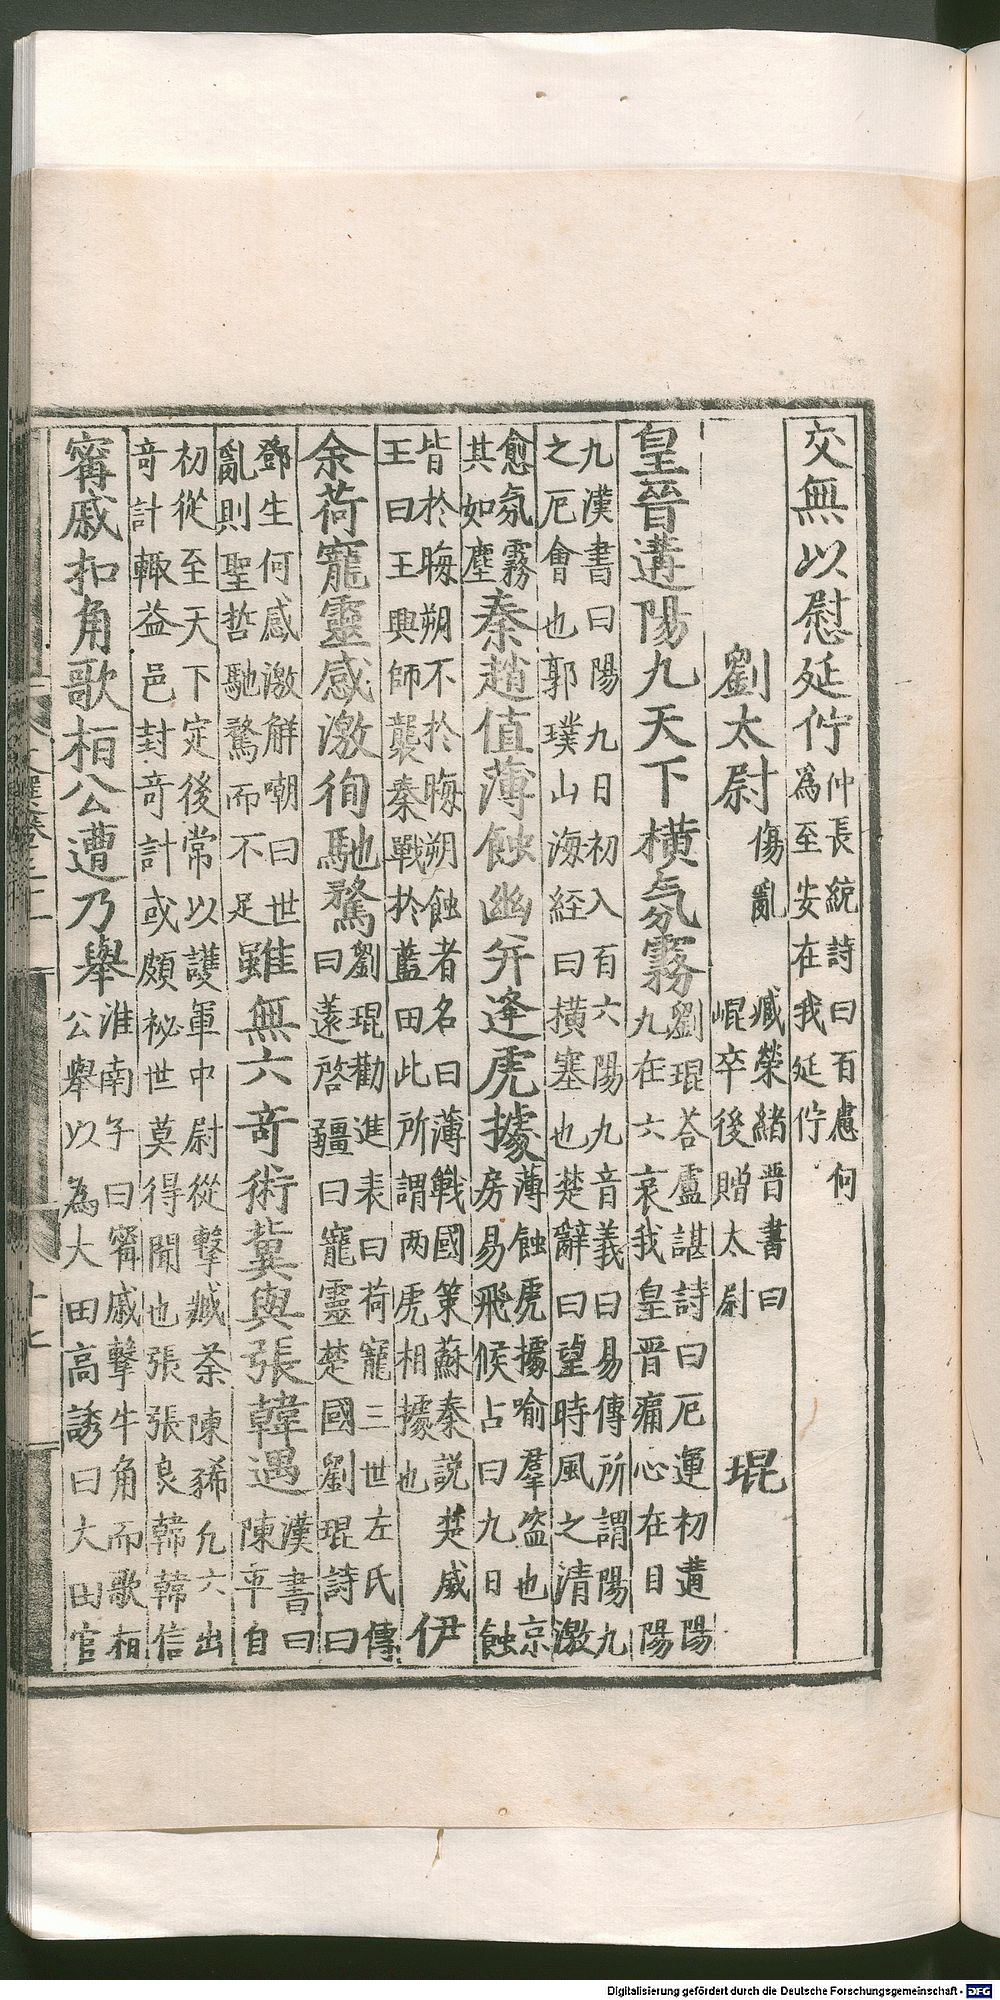 交無以慰延佇仲長統詩曰百慮何
為至安在我延佇
劉太尉傷亂臧榮緒晉書曰
琨卒後贈太尉
琨
皇晉遘陽九天下橫氛霧劉琨荅盧諶詩曰厄運初遘陽
九在六哀我皇晉痛心在目陽
九漢書曰陽九日初入百六陽九音義曰易傳所謂陽九
之厄會也郭璞山海經曰橫塞也楚辭曰望時風之清激
愈氛霧
其如塵
秦趙值薄蝕幽并逢虎據薄蝕虎據喻羣盗也京
房易飛候占曰九日蝕
皆於晦朔不於晦朔蝕者名曰薄戰國策蘇秦說楚威
王曰王興師襲秦戰於藍田此所謂两虎相據也
伊
余荷寵靈感激徇馳騖劉琨勸進表曰荷寵三世左氏傳
曰薳啓疆曰寵靈楚國劉琨詩曰
鄧生何感激解嘲曰世
亂則聖哲馳騖而不足
雖無六奇術冀與張韓遇漢書曰
陳平自
初從至天下定後常以護軍中尉從擊臧荼陳豨凢六出
竒計輙益邑封竒計或頗祕世莫得聞也張張良韓韓信
甯戚扣角歌桓公遭乃舉淮南子曰甯戚擊牛角而歌桓
公舉以為大田高誘曰大田官
文選卷三十一
十七
Digitalisierung gefördert durch die Deutsche Forschungsgemeinschaft - DFG